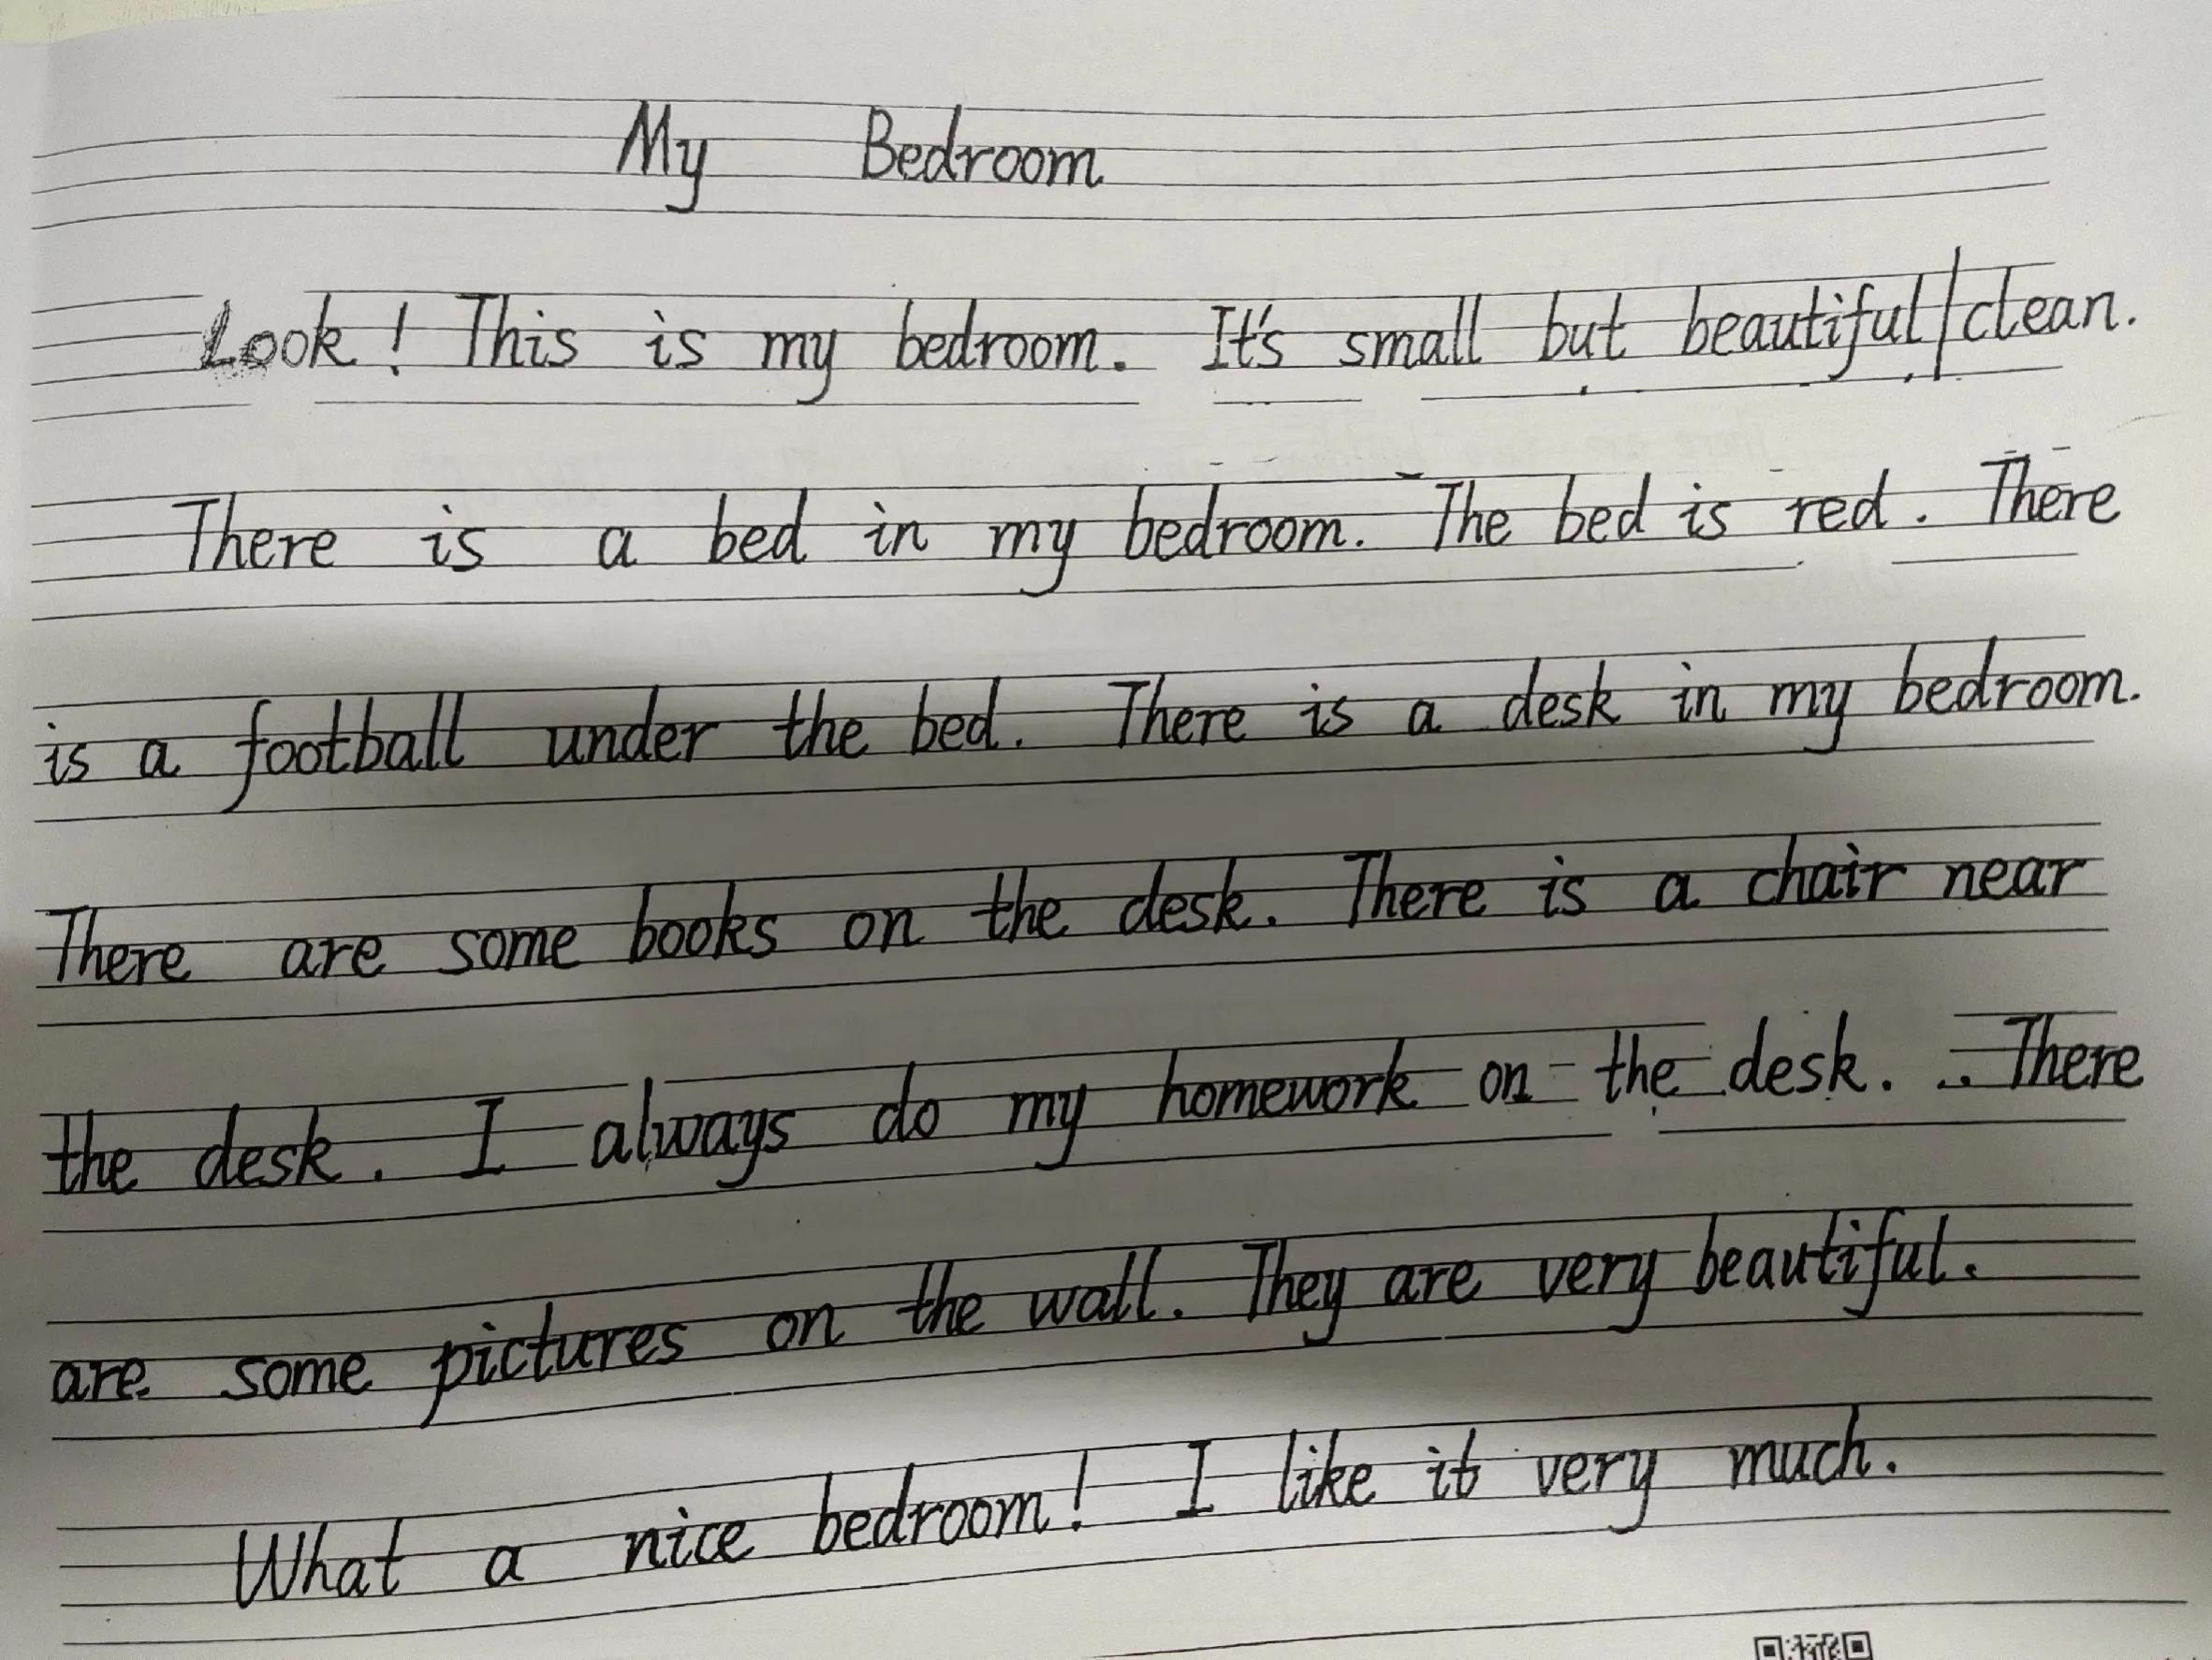 My Bedroom
Look! This is my bedroom. It's small but beautiful/clean.
There is a bed in my bedroom. The bed is red. There
is a football under the bed. There is a desk in my bedroom.
There are some books on the desk. There is a chair near
the desk. I always do my homework on the desk. There
are some pictures on the wall. They are very beautiful.
What a nice bedroom! I like it very much.